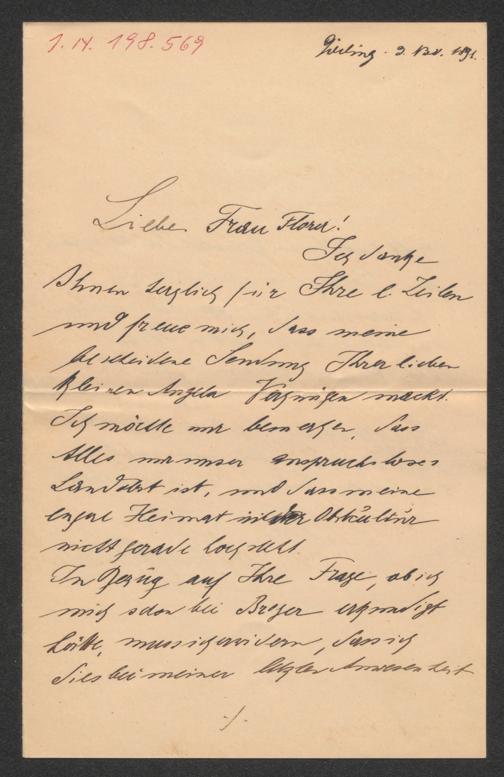 I. N. 198.569
Liebe Frau Flora!
Ich danke
Ihnen herzlich für Ihre l. Zeilen
und freue mich, dass meine
bescheidene Sendung Ihrer lieben
kleinen Angela Vergnügen macht.
Ich möchte nur bemerken, dass
Alles nur unser anspruchsloses
Landobst ist, und dass meine
engere Heimat in der Obstkultur
nicht gerade hoch steht.
In Bezug auf Ihre Frage, ob ich
mich schon bei erkundigt
hätte, muss ich erwidern, dass ich
dies bei meiner letzten Anwesenheit
./.